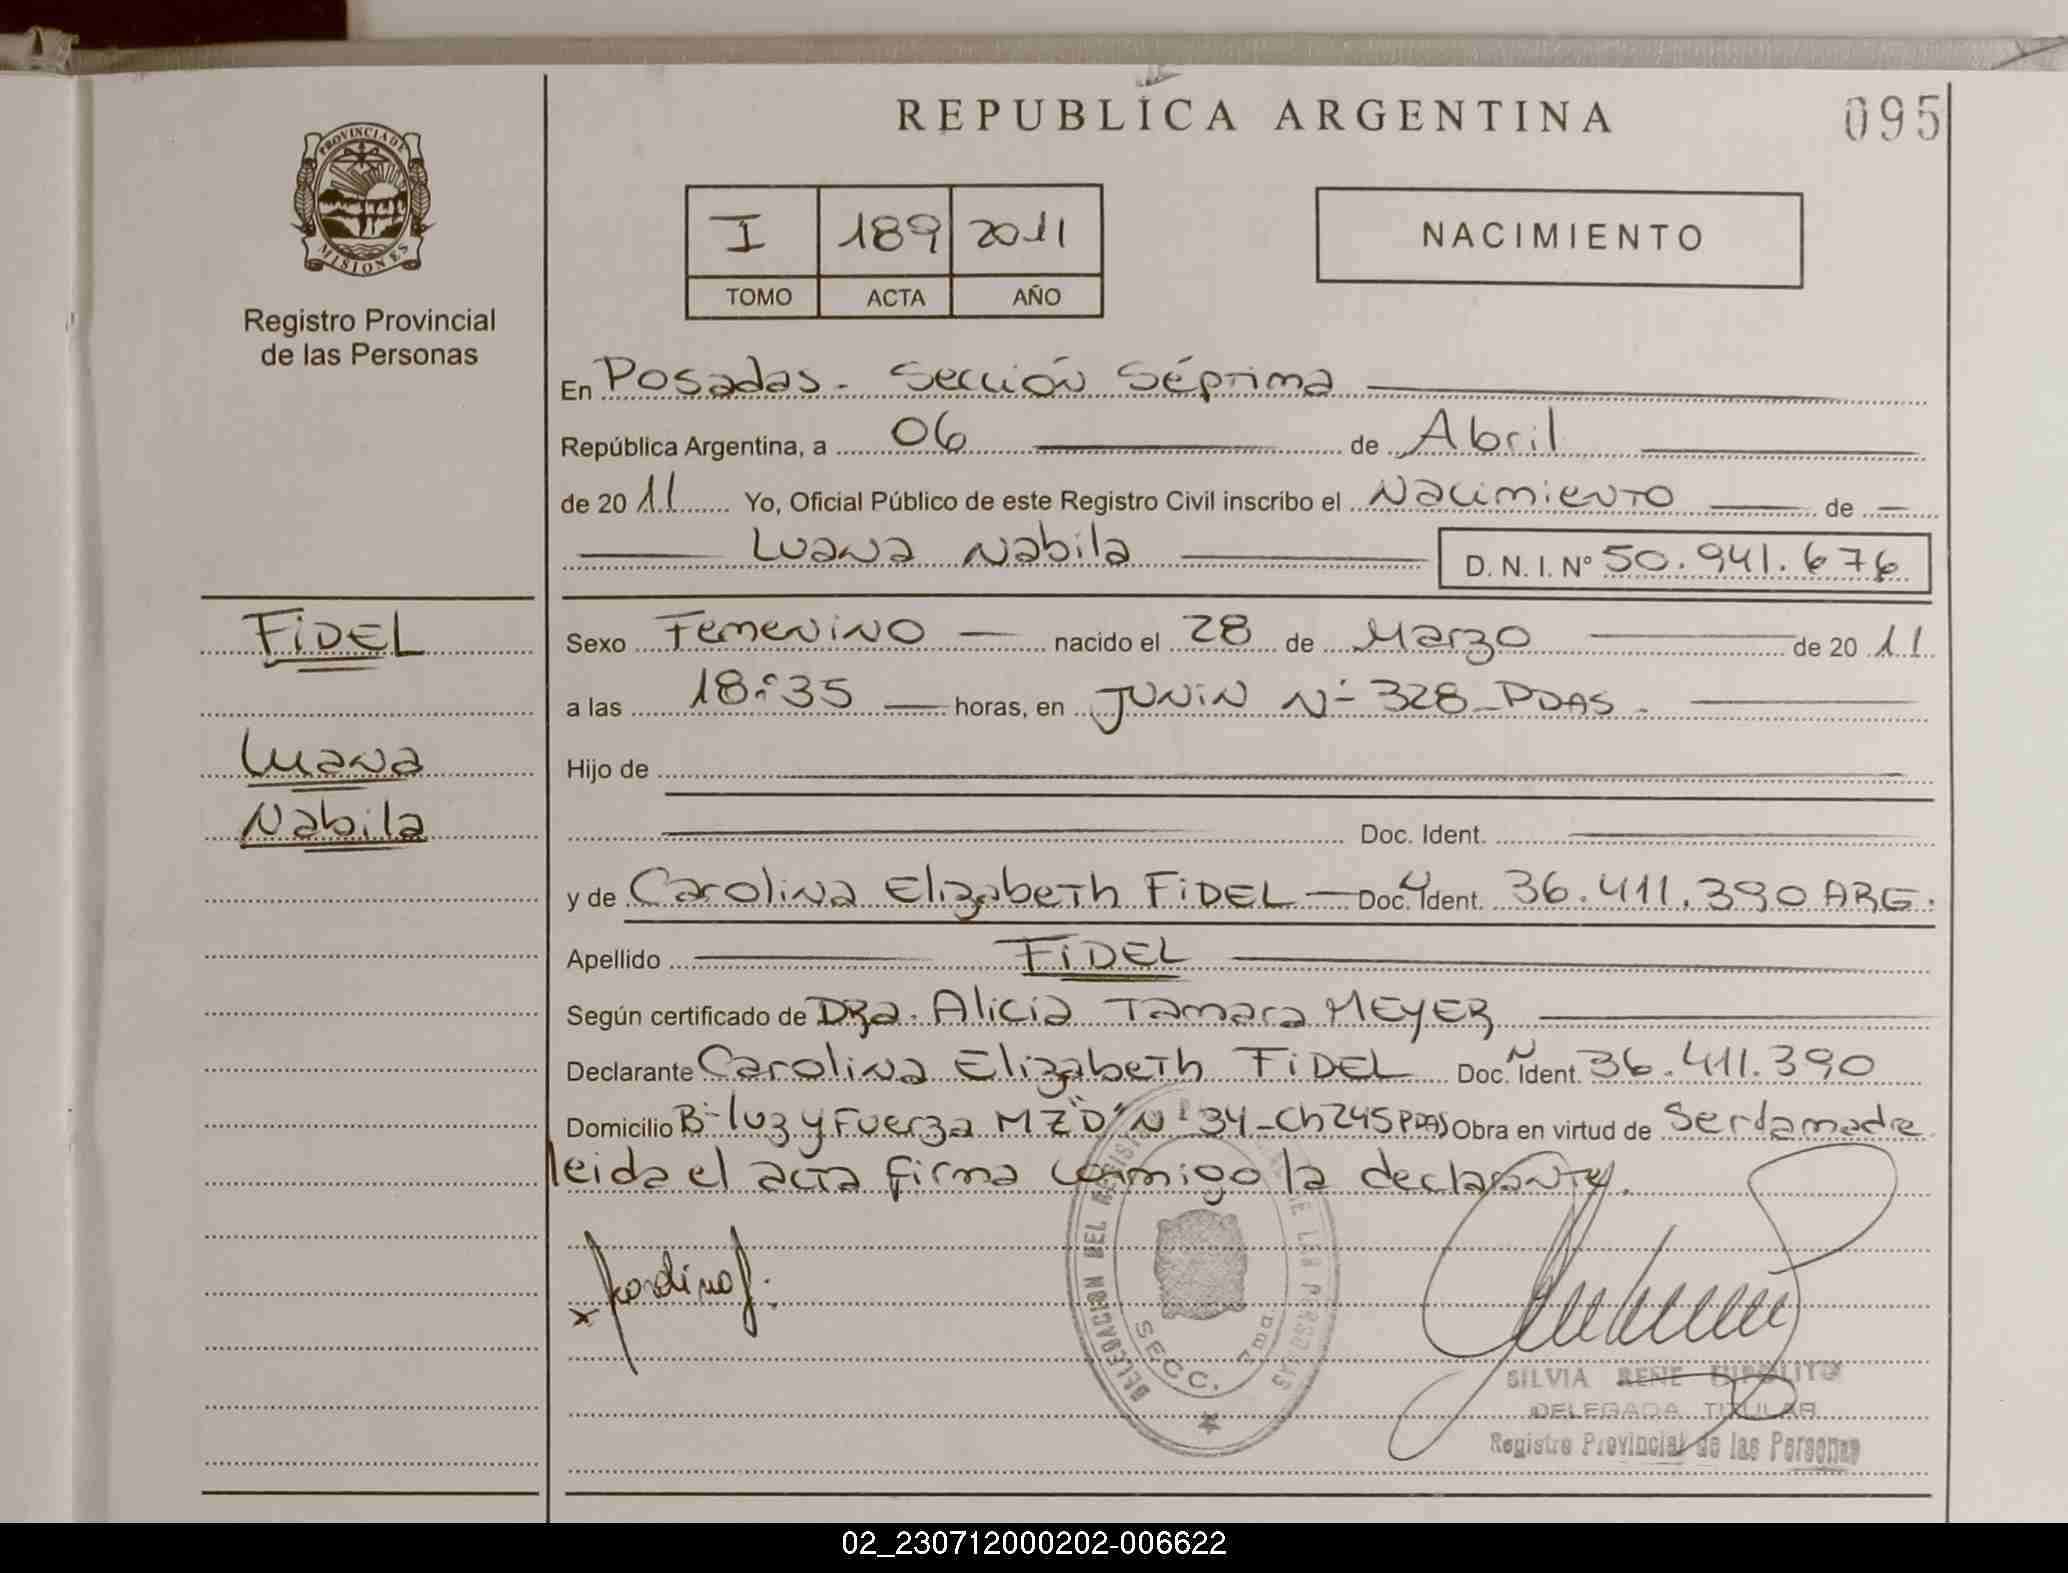 REPUBLICA ARGENTINA
095
PROVINCIA DE
MISIONES
Registro Provincial
de las Personas
I 189 2011
TOMO ACTA AÑO
NACIMIENTO
En Posadas - Sección Séptima
República Argentina, a 06 de Abril
de 2011 Yo, Oficial Público de este Registro Civil inscribo el Nacimiento de
Luana Nabila D. N. I. Nº 50.941.676
FIDEL
Luana
Nabila
Sexo Femenino nacido el 28 de Marzo de 2011
a las 18:35 horas, en JUNIN Nº 328 - PDAS.
Hijo de
Doc. Ident.
y de Carolina Elizabeth FIDEL Doc. Ident. 36.411.390 ARG.
Apellido FIDEL
Según certificado de Dra. Alicia Tamara MEYER
Declarante Carolina Elizabeth FIDEL Doc. N Ident. 36.411.390
Domicilio Bº luz y Fuerza MZ "D" Nº 34 - Ch 245 PDAS Obra en virtud de Ser la madre
leida el acta firma conmigo la declarante.
x
DELEGACION DEL REGISTRO DE LAS PERSONAS
SECC. 7ma
SILVIA RENE HIPOLITO
DELEGADA TITULAR
Registro Provincial de las Personas
02_230712000202-006622